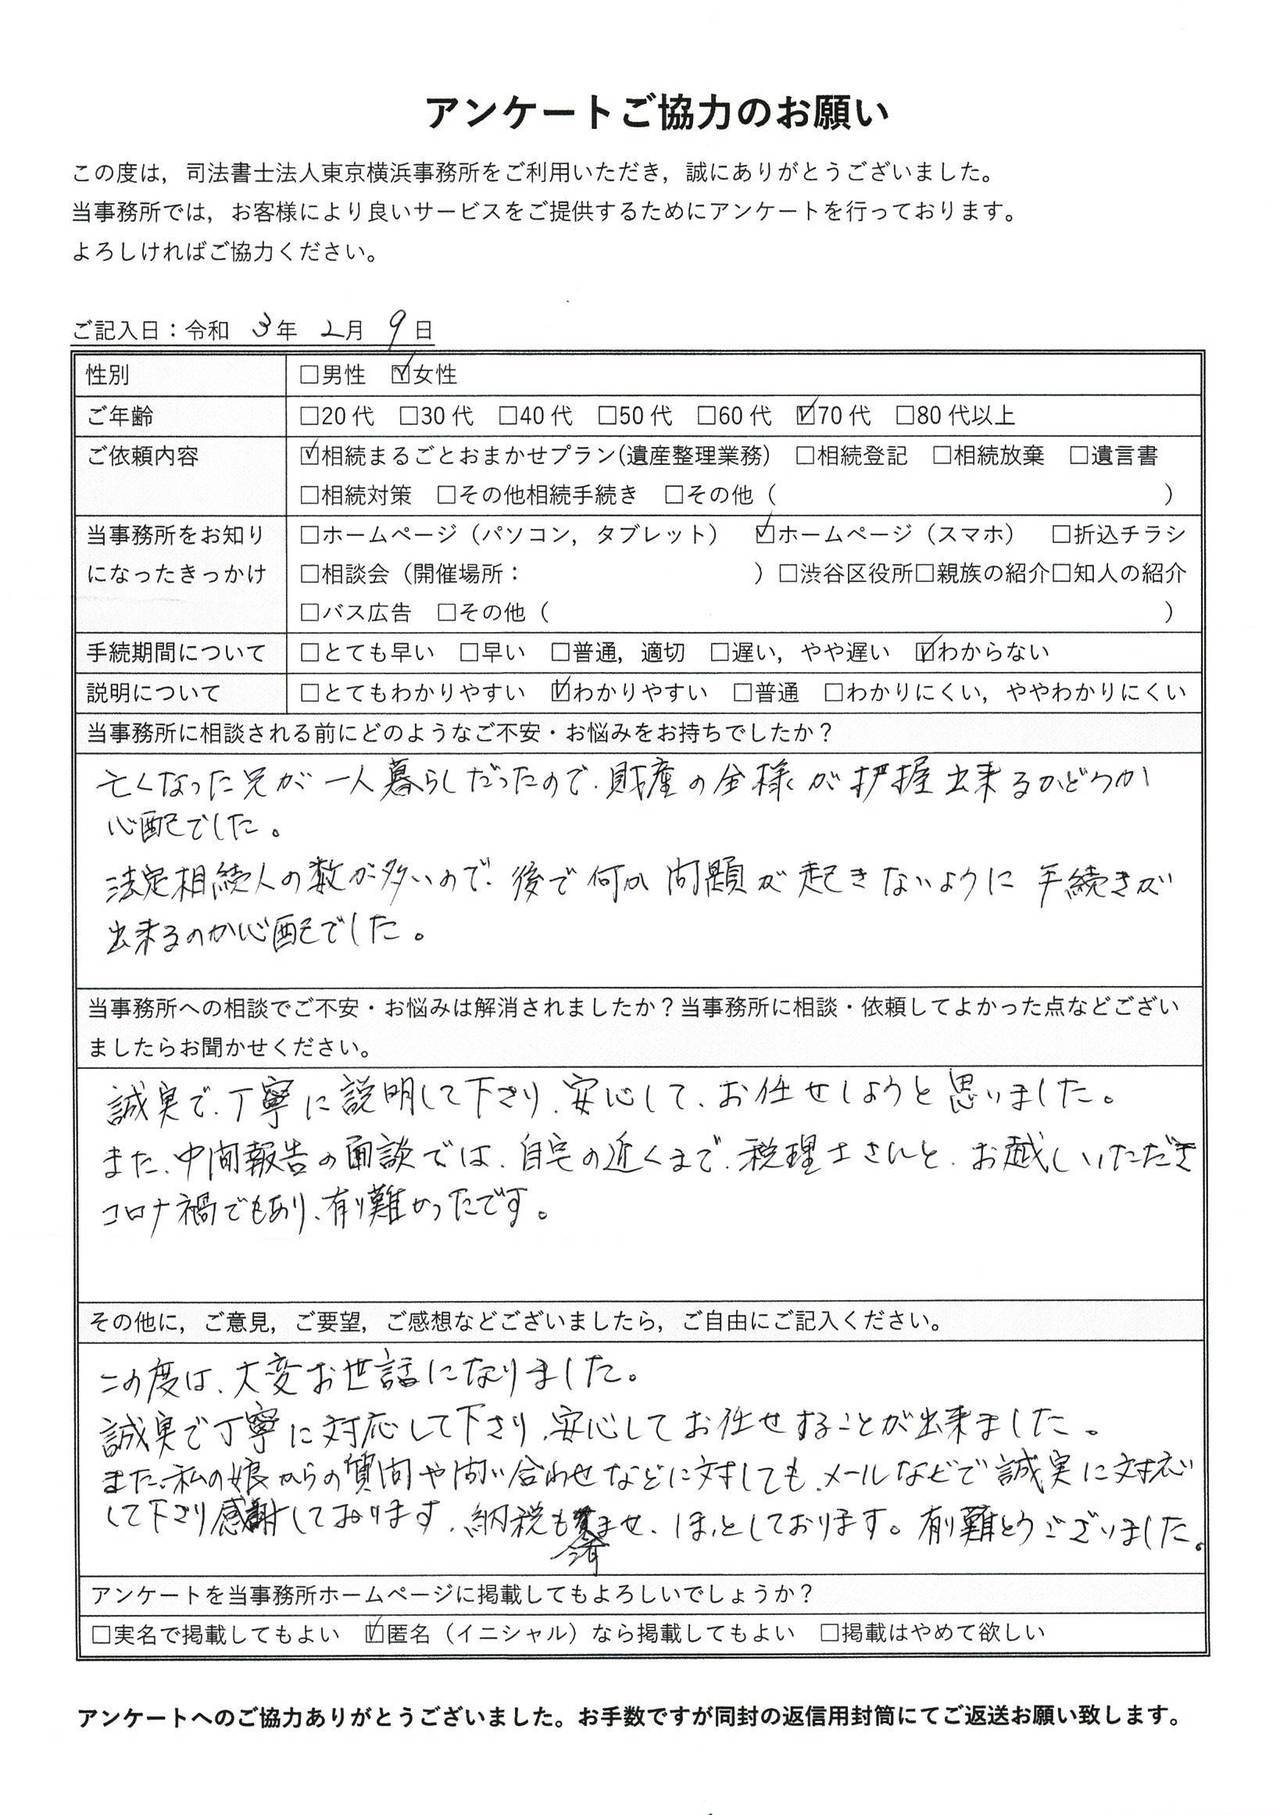 アンケートご協力のお願い
この度は，司法書士法人東京横浜事務所をご利用いただき，誠にありがとうございました。
当事務所では，お客様により良いサービスをご提供するためにアンケートを行っております。
よろしければご協力ください。
ご記入日：令和 3年 2月 9日
性別 □男性 ☑女性
ご年齢 □20代 □30代 □40代 □50代 □60代 ☑70代 □80代以上
ご依頼内容 ☑相続まるごとおまかせプラン(遺産整理業務) □相続登記 □相続放棄 □遺言書
□相続対策 □その他相続手続き □その他（ ）
当事務所をお知り □ホームページ（パソコン，タブレット） ☑ホームページ（スマホ） □折込チラシ
になったきっかけ □相談会（開催場所： ）□渋谷区役所□親族の紹介□知人の紹介
□バス広告 □その他（ ）
手続期間について □とても早い □早い □普通，適切 □遅い，やや遅い ☑わからない
説明について □とてもわかりやすい ☑わかりやすい □普通 □わかりにくい，ややわかりにくい
当事務所に相談される前にどのようなご不安・お悩みをお持ちでしたか？
亡くなった兄が一人暮らしだったので、財産の全様が把握出来るかどうか
心配でした。
法定相続人の数が多いので、後で何か問題が起きないように手続きが
出来るのか心配でした。
当事務所への相談でご不安・お悩みは解消されましたか？当事務所に相談・依頼してよかった点などござい
ましたらお聞かせください。
誠実で、丁寧に説明して下さり、安心して、お任せしようと思いました。
また、中間報告の面談では、自宅の近くまで、税理士さんと、お越しいただき
コロナ禍でもあり、有り難かったです。
その他に，ご意見，ご要望，ご感想などございましたら，ご自由にご記入ください。
この度は、大変お世話になりました。
誠実で丁寧に対応して下さり、安心してお任せすることが出来ました。
また、私の娘からの質問や問い合わせなどに対しても、メールなどで誠実に対応
して下さり感謝しております。納税も済ませ、ほっとしております。有り難とうございました。
アンケートを当事務所ホームページに掲載してもよろしいでしょうか？
□実名で掲載してもよい ☑匿名（イニシャル）なら掲載してもよい □掲載はやめて欲しい
アンケートへのご協力ありがとうございました。お手数ですが同封の返信用封筒にてご返送お願い致します。